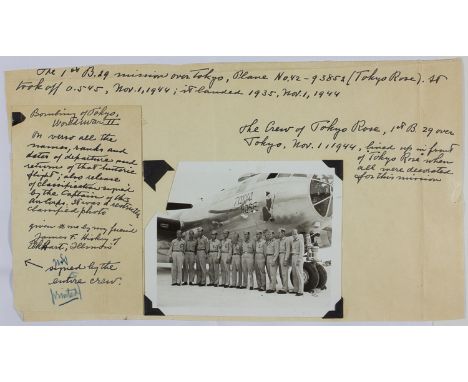 The 1st B.29 mission over Tokyo, Plane No. 42-93852 (Tokyo Rose). It
took off 0.545, Nov. 1, 1944; it landed 1935, Nov. 1, 1944
Bombing of Tokyo,
World War II
On verso all the
names, ranks and
dates of departures and
returns of that historic
flight; also release
of classification signed
by the Captain of this
It was a restricted
classified photo
given to me by my friend
James F. Hickey of
Elkhart, Illinois
not
signed by the
entire crew.
printed
The Crew of Tokyo Rose, 1st B.29 over
Tokyo, Nov. 1, 1944, lined up in front
of Tokyo Rose when
all were decorated
for this mission
TOKYO
ROSE